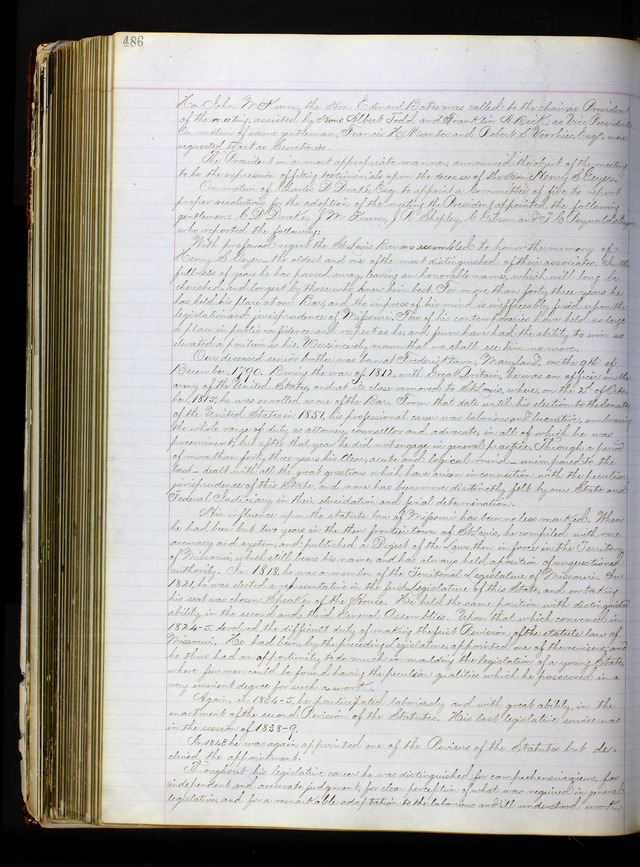 486
Hon John M Krum, the Hon Edward Bates was called to the chair as President
of the meeting, assisted by Hons Albert Todd and Franklin A Dick as Vice Presidents
On motion of same gentleman, Francis H Manter and Robert S. Voorhies, Esqs, were
requested to act as Secretaries.
The President in a most appropriate manner, announced the object of the meeting
to be the expression of fitting testimonials upon the decease of the Hon Henry S. Geyer.
On motion of Charles D. Drake, Esq. to appoint a Committee of five to report
proper resolutions for the adoption of the meeting the President appointed the following
gentlemen: C D Drake, J M Krum, J R Shepley, C Gibson and T. C. Reynolds Esqrs,
who reported the following:
With profound regret the St. Louis Bar is assembled to honor the memory of
Henry S. Geyer—the oldest and one of the most distinguished of their associates. In the
fullness of years he has passed away, leaving an honorable name, which will long be
cherished, and longest by those who knew him best. For more than forty three years he
has held his place at our Bar, and the impress of his mind is ineffaceably fixed upon the
legislation and jurisprudence of Missouri. Few of his contemporaries have held as large
a place in public confidence and respect as he, and fewer have had the ability to win so
elevated a position as his. We sincerely mourn that we shall see him no more.
Our deceased senior brother was born at Fredericktown, Maryland, on the 9th of
December, 1790. During the war of 1812, with Great Britain, he was an officer in the
army of the United States, and at its close removed to St. Louis, where, on the 2d of Octo-
ber 1815, he was enrolled as one of the Bar. From that date until his election to the Senate
of the United States in 1851, his professional career was laborious and lucrative, embracing
the whole range of duty as attorney, counsellor and advocate, in all of which he was
preeminent; but after that year he did not engage in general practice. Through a period
of more than forty three years his clear, acute and logical mind—unimpaired to the
last—dealt with all the great questions which have arisen in connection with the peculiar
jurisprudence of this State, and none has been more distinctly felt by our State and
Federal Judiciary, in their elucidation and final determination.
His influence upon the statute law of Missouri has been no less marked. When
he had been but two years in the then frontier town of St. Louis, he compiled with rare
accuracy and system, and published a Digest of the Laws then in force in the Territory
of Missouri, which still bears his name, and has always held a position of unquestioned
authority. In 1818, he was a member of the Territorial Legislature of Missouri. In
1821, he was elected a representative in the first Legislature of this State, and on taking
his seat was chosen Speaker of the House. He held the same position with distinguished
ability, in the second and third General Assemblies. Upon that which convened in
1824-5, devolved the difficult duty of making the first Revision of the statute law of
Missouri. He had been, by the preceding Legislature, appointed one of the revisers; and
he thus had an opportunity to do much in moulding the legislation of a young State,
where few men could be found having the peculiar qualities which he possessed in a
very eminent degree for such a work.
Again, in 1834-5, he participated laboriously and with great ability, in the
enactment of the second Revision of the Statutes. His last legislative service was
in the session of 1838-9.
In 1843 he was again appointed one of the Revisers of the Statutes but de-
clined the appointment.
Throughout his legislative career he was distinguished for comprehensive views, for
independent and accurate judgment, for clear perception of what was required in general
legislation, and for a remarkable adaptation to the laborious and ill understood work